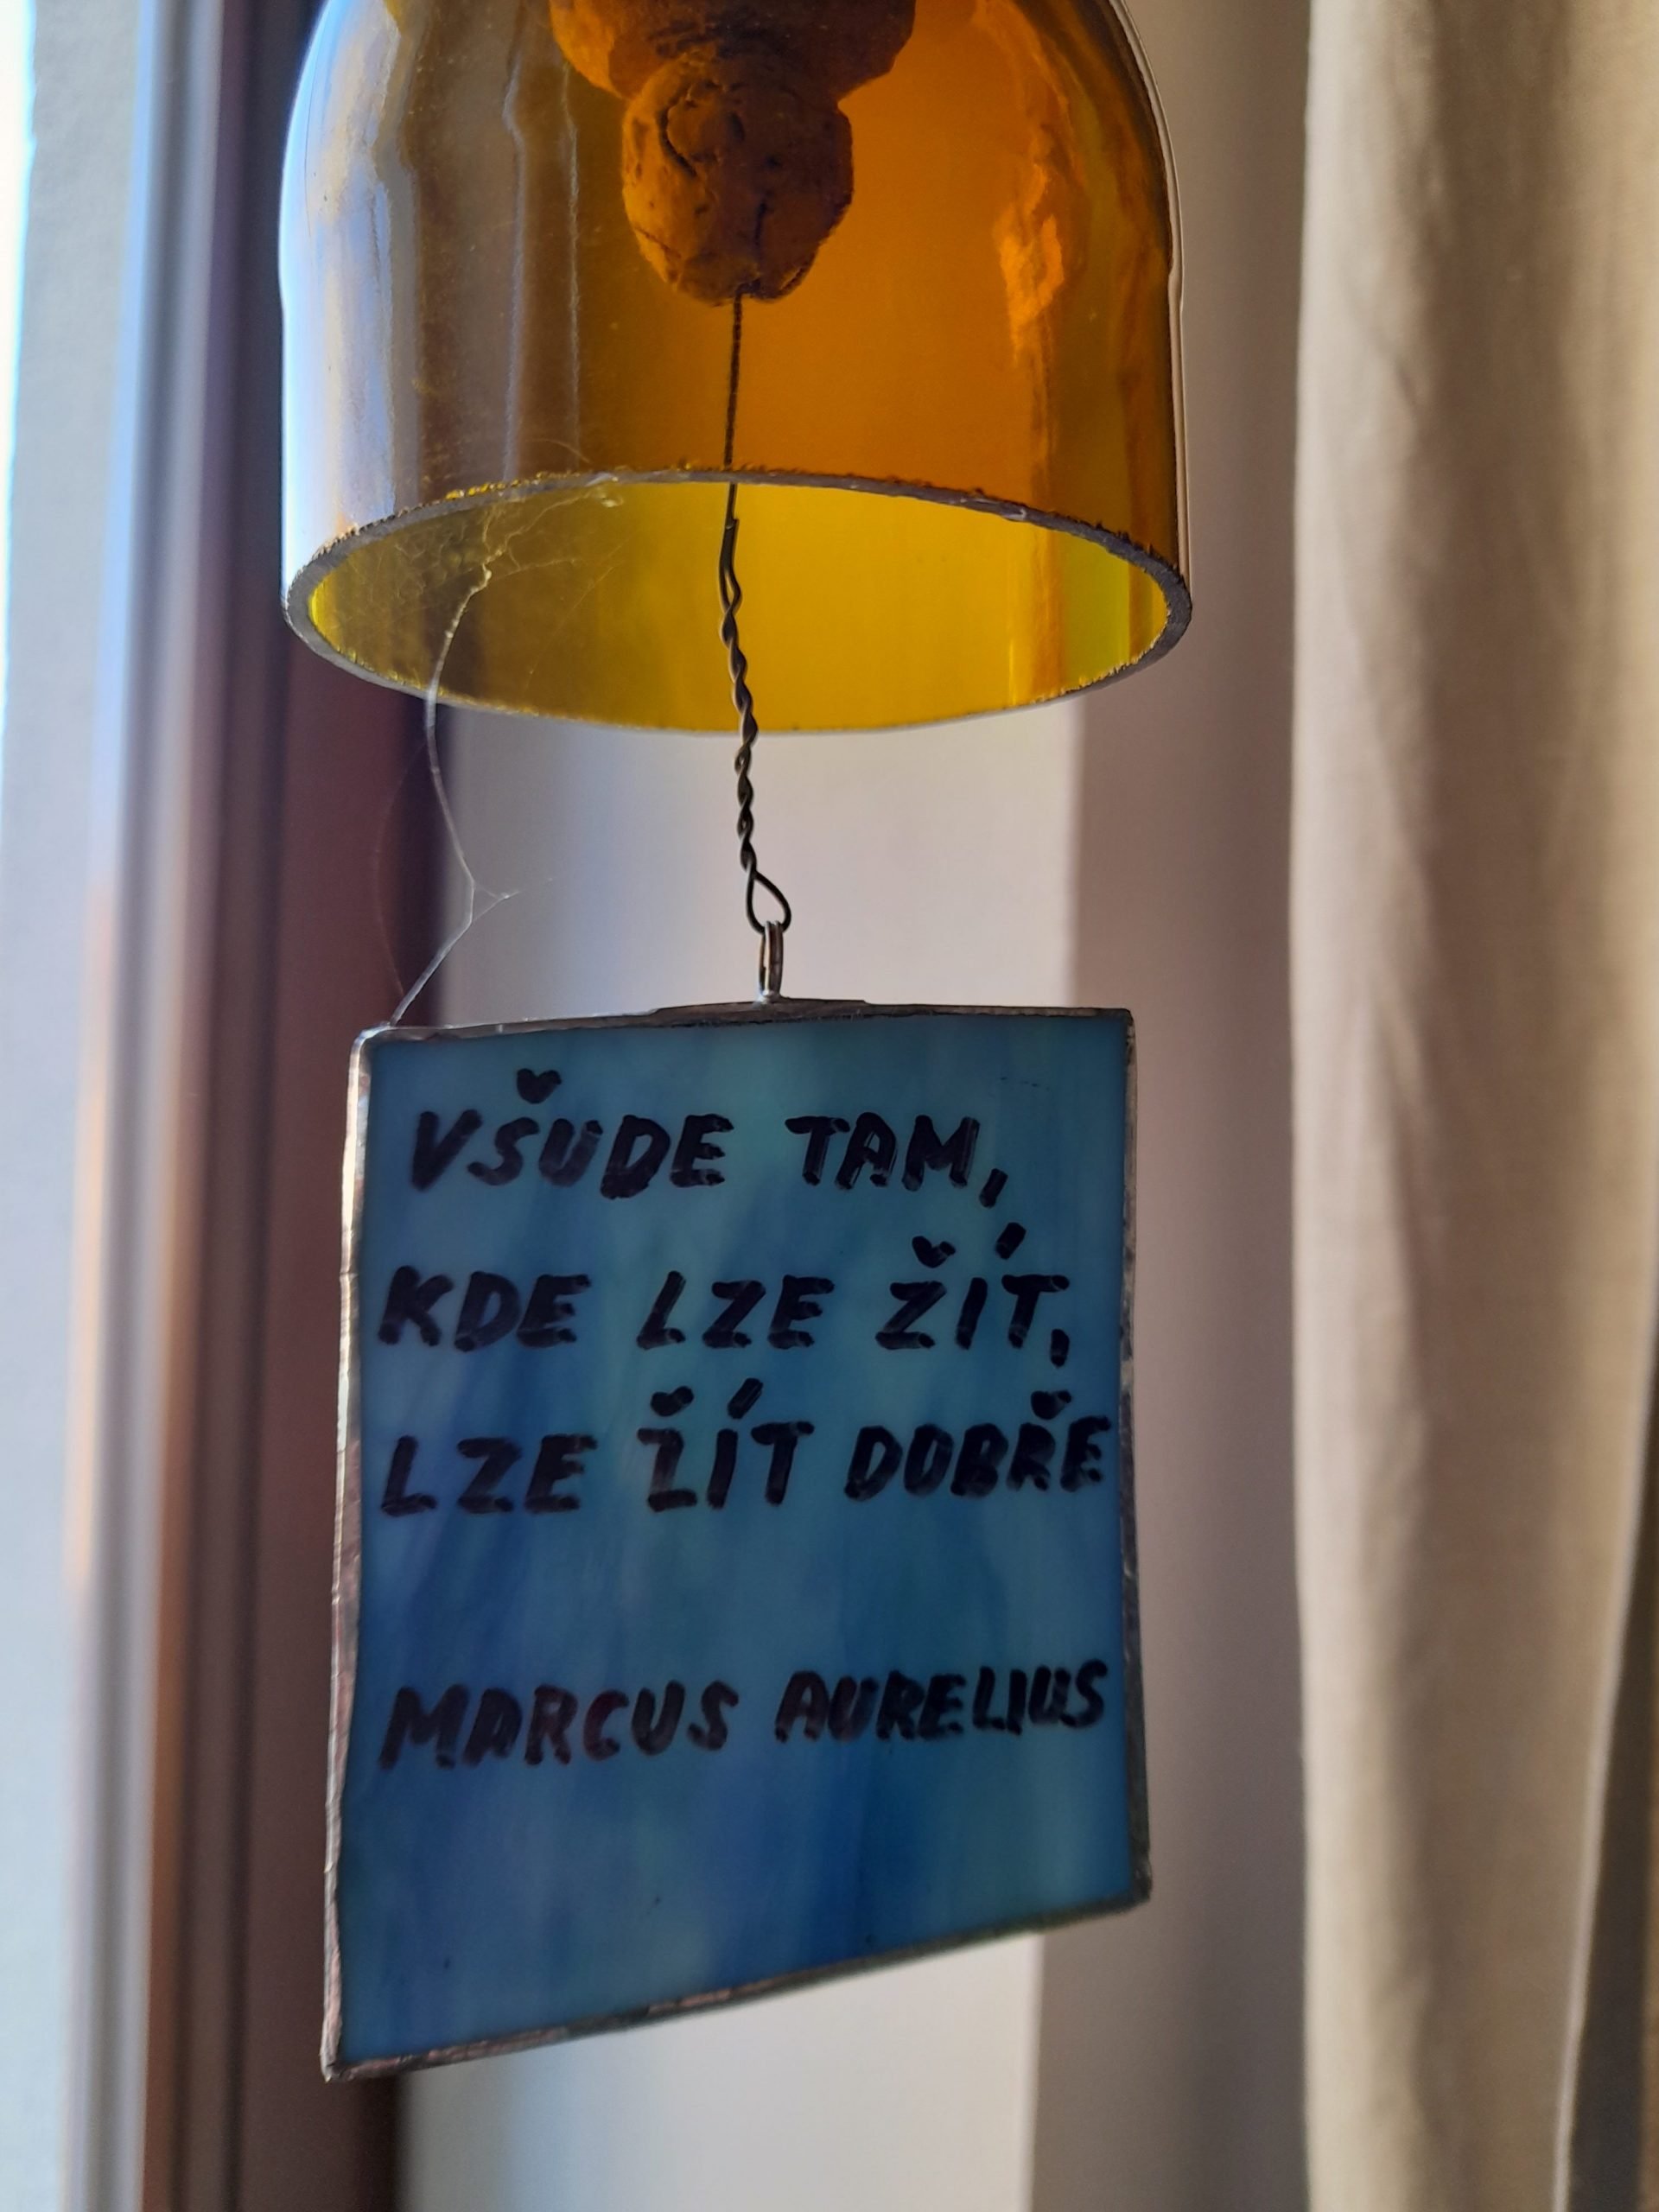 VŠUDE TAM,
KDE LZE ŽÍT,
LZE ŽÍT DOBŘE
MARCUS AURELIUS